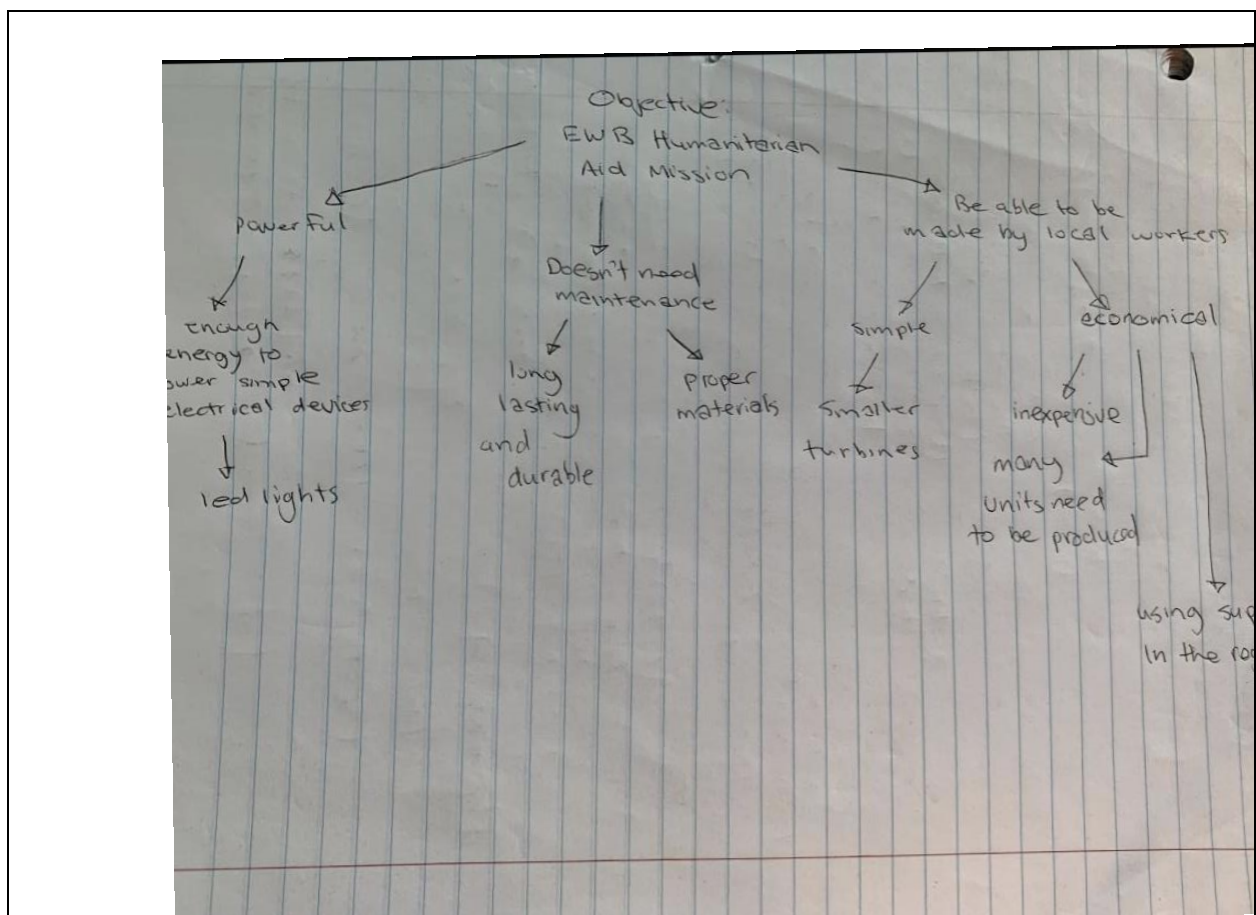 Objective:
EWB Humanitarian
Aid Mission
powerful
Enough
energy to
ower simple
electrical devices
led lights
Doesn't need
maintenance
long
lasting
and
durable
proper
materials
Be able to be
made by local workers
simple
smaller
turbines
economical
inexpensive
many
units need
to be produced
using
In the